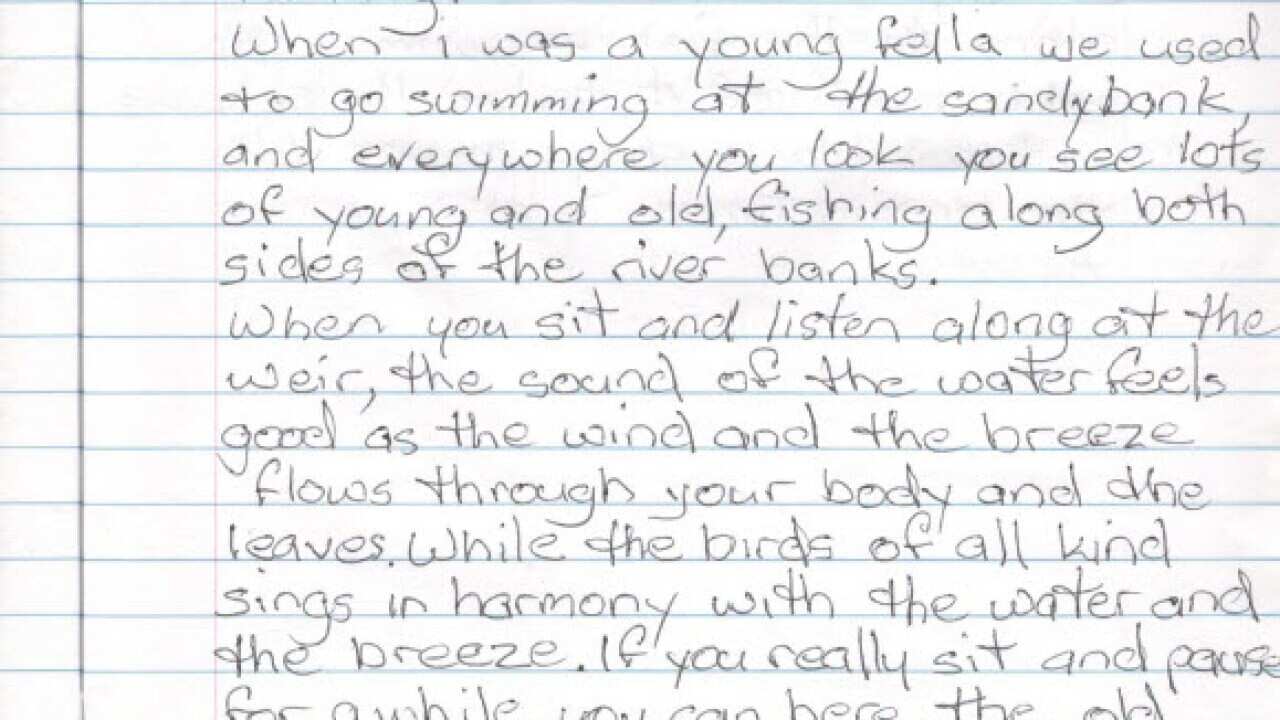 When i was a young fella we used
to go swimming at the sandybank,
and everywhere you look you see lots
of young and old, fishing along both
sides of the river banks.
When you sit and listen along at the
weir, the sound of the water feels
good as the wind and the breeze
flows through your body and the
leaves. While the birds of all kind
sings in harmony with the water and
the breeze. If you really sit and pause
for awhile you can here the old